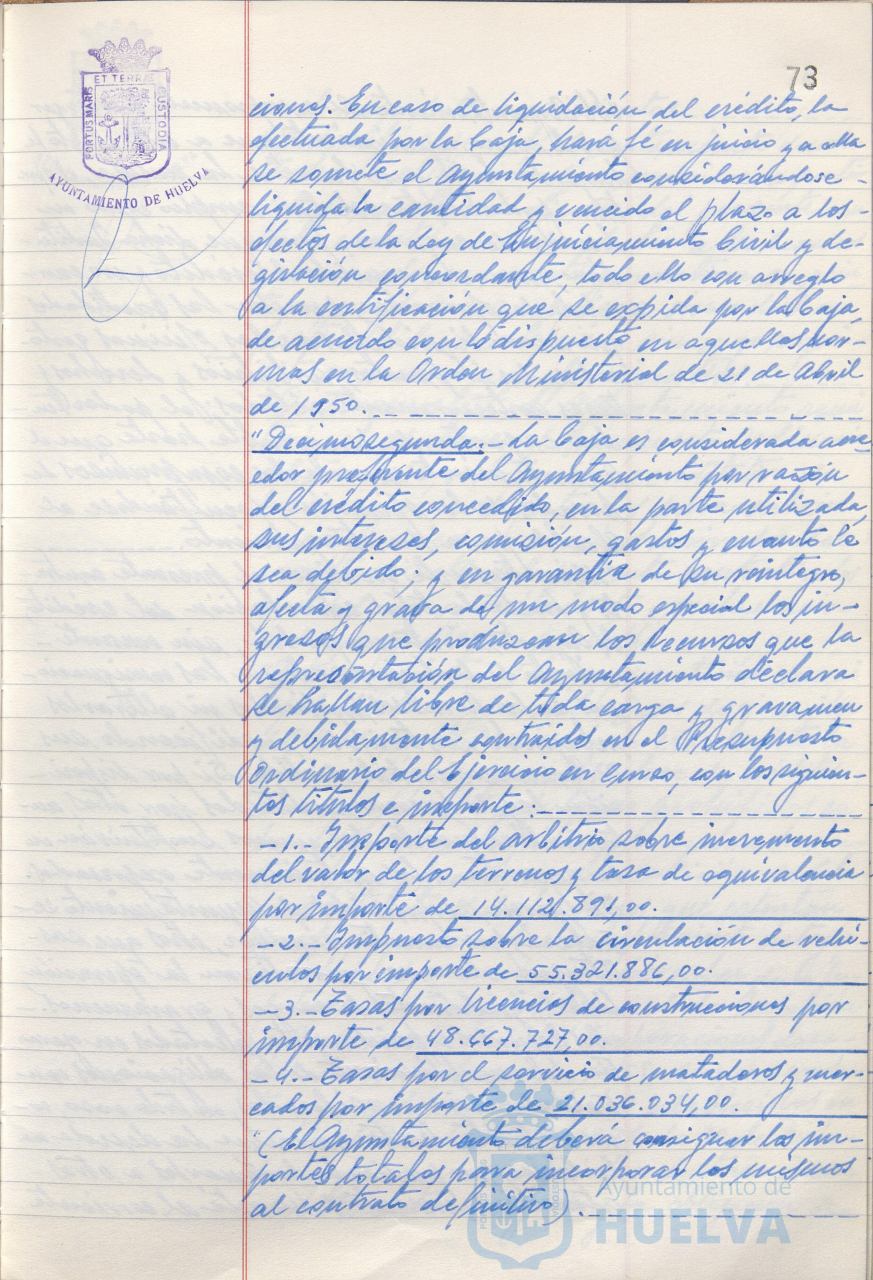 73
PORTUS MARIS ET TERRAE CUSTODIA
AYUNTAMIENTO DE HUELVA
ciones. En caso de liquidación del crédito, la
efectuada por la Caja, hará fé en juicio y a ella
se somete el Ayuntamiento considerándose-
liquida la cantidad y vencido el plazo a los-
efectos de la Ley de Enjuiciamiento Civil y le-
gislación concordante, todo ello con arreglo
a la certificación que se expida por la Caja,
de acuerdo con lo dispuesto en aquellas nor-
mas en la Orden Ministerial de 21 de Abril
de 1950.
"Decimosegunda.- La Caja es considerada acre-
edor preferente del Ayuntamiento por razón
del crédito concedido, en la parte utilizada,
sus intereses, comisión, gastos y cuanto le
sea debido; y en garantía de su reintegro,
afecta y grava de un modo especial los in-
gresos que produzcan los recursos que la
representación del Ayuntamiento declara
se hallan libre de toda carga y gravamen
y debidamente contraidos en el Presupuesto
Ordinario del Ejercicio en Curso, con los siguien-
tes titulos e importe:
-1.- Importe del arbitrio sobre incremento
del valor de los terrenos y tasa de equivalencia
por importe de 14.112.891,00.
-2.- Impuesto sobre la circulación de vehi-
culos por importe de 55.321.886,00.
-3.- Tasas por licencias de construcciones por
importe de 48.667.727,00.
-4.- Tasas por el servicio de mataderos y mer-
cados por importe de 21.036.034,00.
"(El Ayuntamiento deberá consignar los im-
portes totales para incorporar los mismos
al contrato definitivo).
Ayuntamiento de
HUELVA